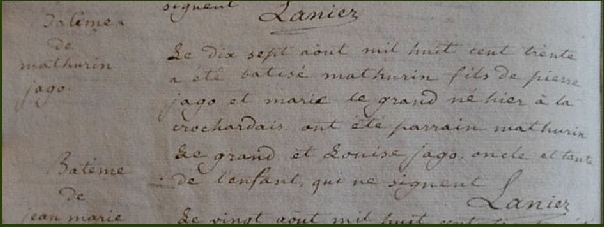 signent Laniez
Batême
de
mathurin
jago.
Le dix sept août mil huit cent trente
a été batisé mathurin fils de pierre
jago et marie le grand né hier à la
crochardais ont été parrain mathurin
Le grand et Louise jago, oncle et tante
de l'enfant, qui ne signent
Laniez
Batême
de
jean marie
Le vingt août mil huit cent